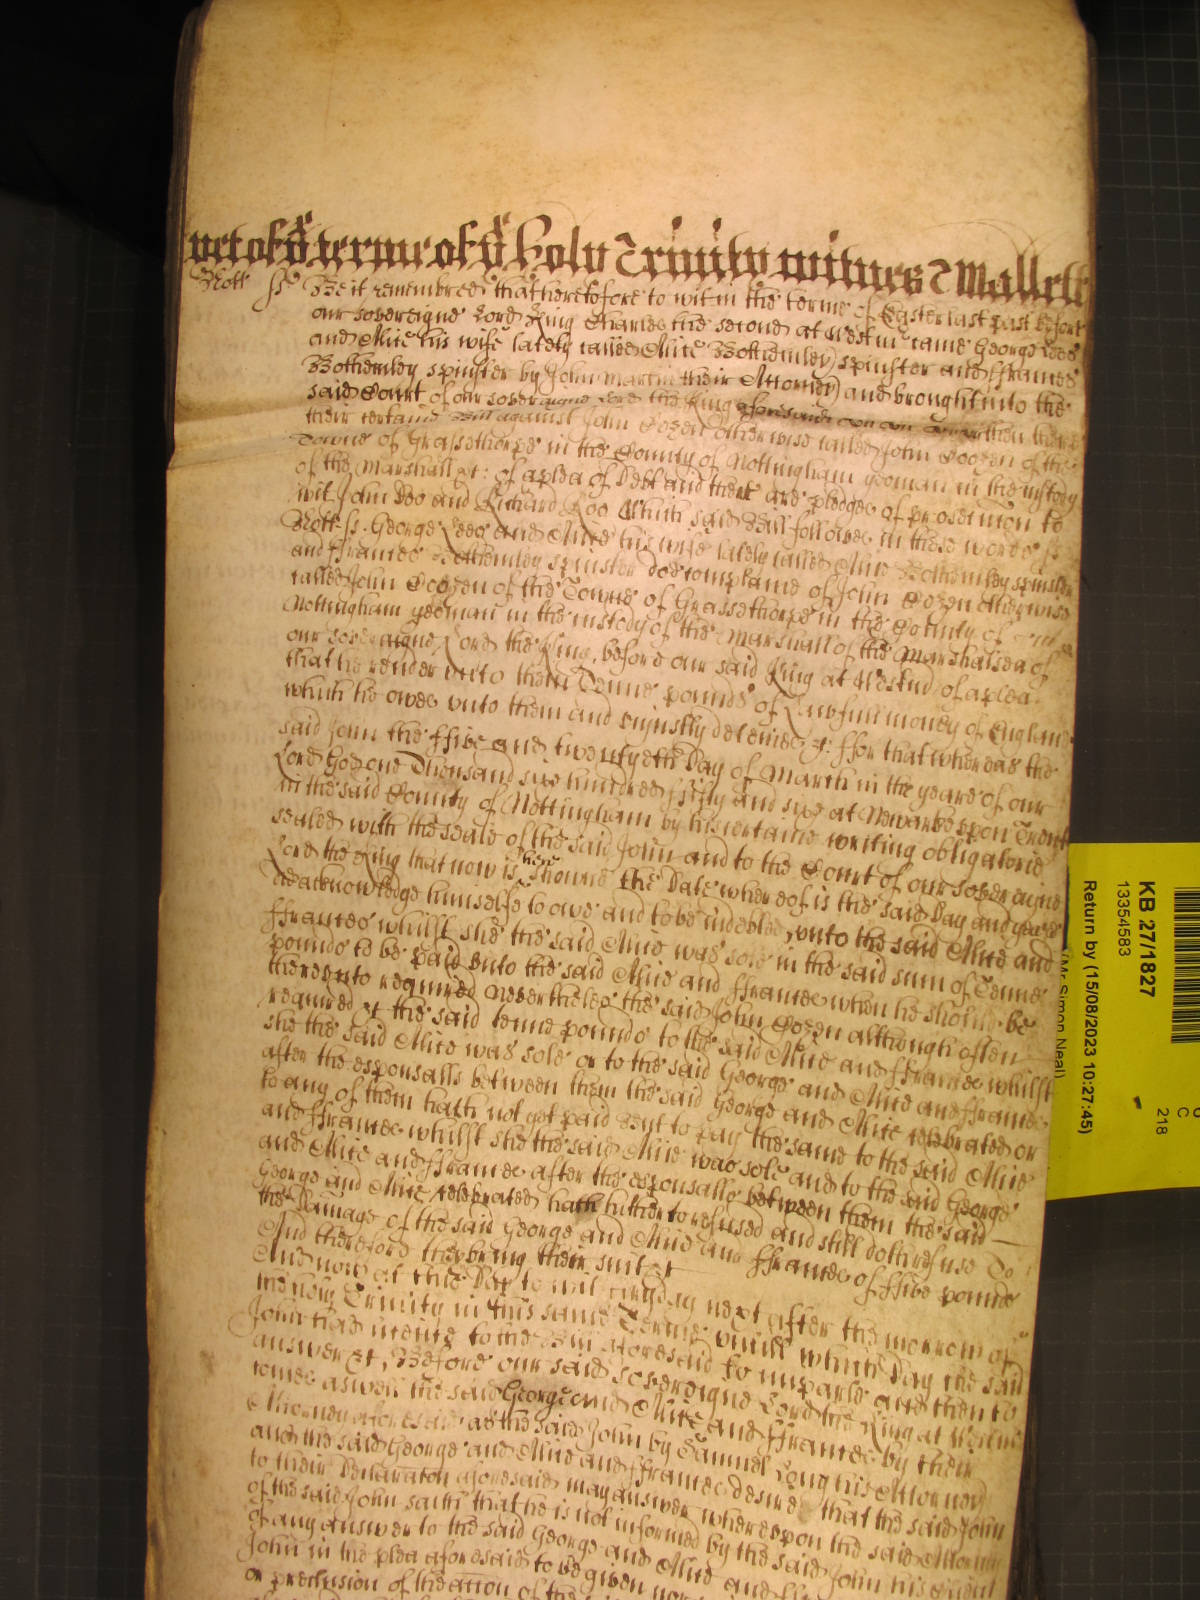 yet of yͤ terme of yͤ Holy Trinity witnes T Mallett
Nott ss Be it remembred that heretofore to wit in the terme of Easter last past before
our soveraigne Lord King Charles the second at Westm came George Lees
and Alice his wife lately called Alice Bothemley spinster and Frances
Bothemley spinster by John Martin their Attorney and brought into the
said Court of our soveraigne Lord the King then there
their certaine Bill against John Cozen otherwise called John Cozen of the
Towne of Grassethorpe in the County of Nottingham yeoman in the custody
of the Marshall &c: of a plea of Debt and there are pledges of prosecution to
wit John Doo and Richard Roo Which said Bill followes in these words ss
Nott ss. George Lees and Alice his wife lately called Alice Bothemley spinster
and Frances Bothemley spinster doe complaine of John Cozen otherwise
called John Cozen of the Towne of Grassethorpe in the County of
Nottingham yeoman in the custody of the Marshall of the Marshalsea of
our soveraigne Lord the King, before our said King at Westm of a plea
that he render unto them Tenne pounds of Lawfull money of England
which he owes unto them and unjustly deteines &c: ffor that whereas the
said John the ffive and twentyeth Day of March in the yeare of our
Lord God one Thousand sixe hundred fifty and sixe at Newarke upon Trent
in the said County of Nottingham by his certaine writing obligatorie
sealed with the seale of the said John and to the Court of our soveraigne
Lord the King that now is here showne the Date whereof is the said Day and yeare
did acknowledge himselfe to owe and to be indebted unto the said Alice and
Frances whilst she the said Alice was sole in the said sum of Tenne
pounds to be paid unto the said Alice and Frances when he should be
thereunto required Neverthelesse the said John Cozen although often
required &c the said tenne pounds to the said Alice and Frances whilst
she the said Alice was sole or to the said George and Alice and Frances
after the espousalls between them the said George and Alice celebrated or
to any of them hath not yet paid But to pay the same to the said Alice
and Frances whilst she the said Alice was sole and to the said George
and Alice and Frances after the espousalls between them the said
George and Alice celebrated hath hitherto refused and still doth refuse To
the Damage of the said George and Alice and Frances of ffive pounds
And therefore they bring their suite &c
And now at this Day to wit fryday next after the morrow of
the holy Trinity in this same Terme untill which Day the said
John had licence to the Bill aforesaid to imparle and then to
answer &c, Before our said soveraigne Lord the King at Westm
comes aswell the said George and Alice and Frances by their
Attorney aforesaid as the said John by Samuel Long his Attorney
and the said George and Alice and Frances desire that the said John
to their Declaracon aforesaid may answer whereupon the said Attorney
of the said John saith that he is not informed by the said John his Client
of any answer to the said George and Alice and
John in the plea aforesaid to be given nor
or preclusion of the action of the
KB 27/1827
13354583
Return by (15/08/2023 10:27:45)
(Mr Simon Neal)
218
C